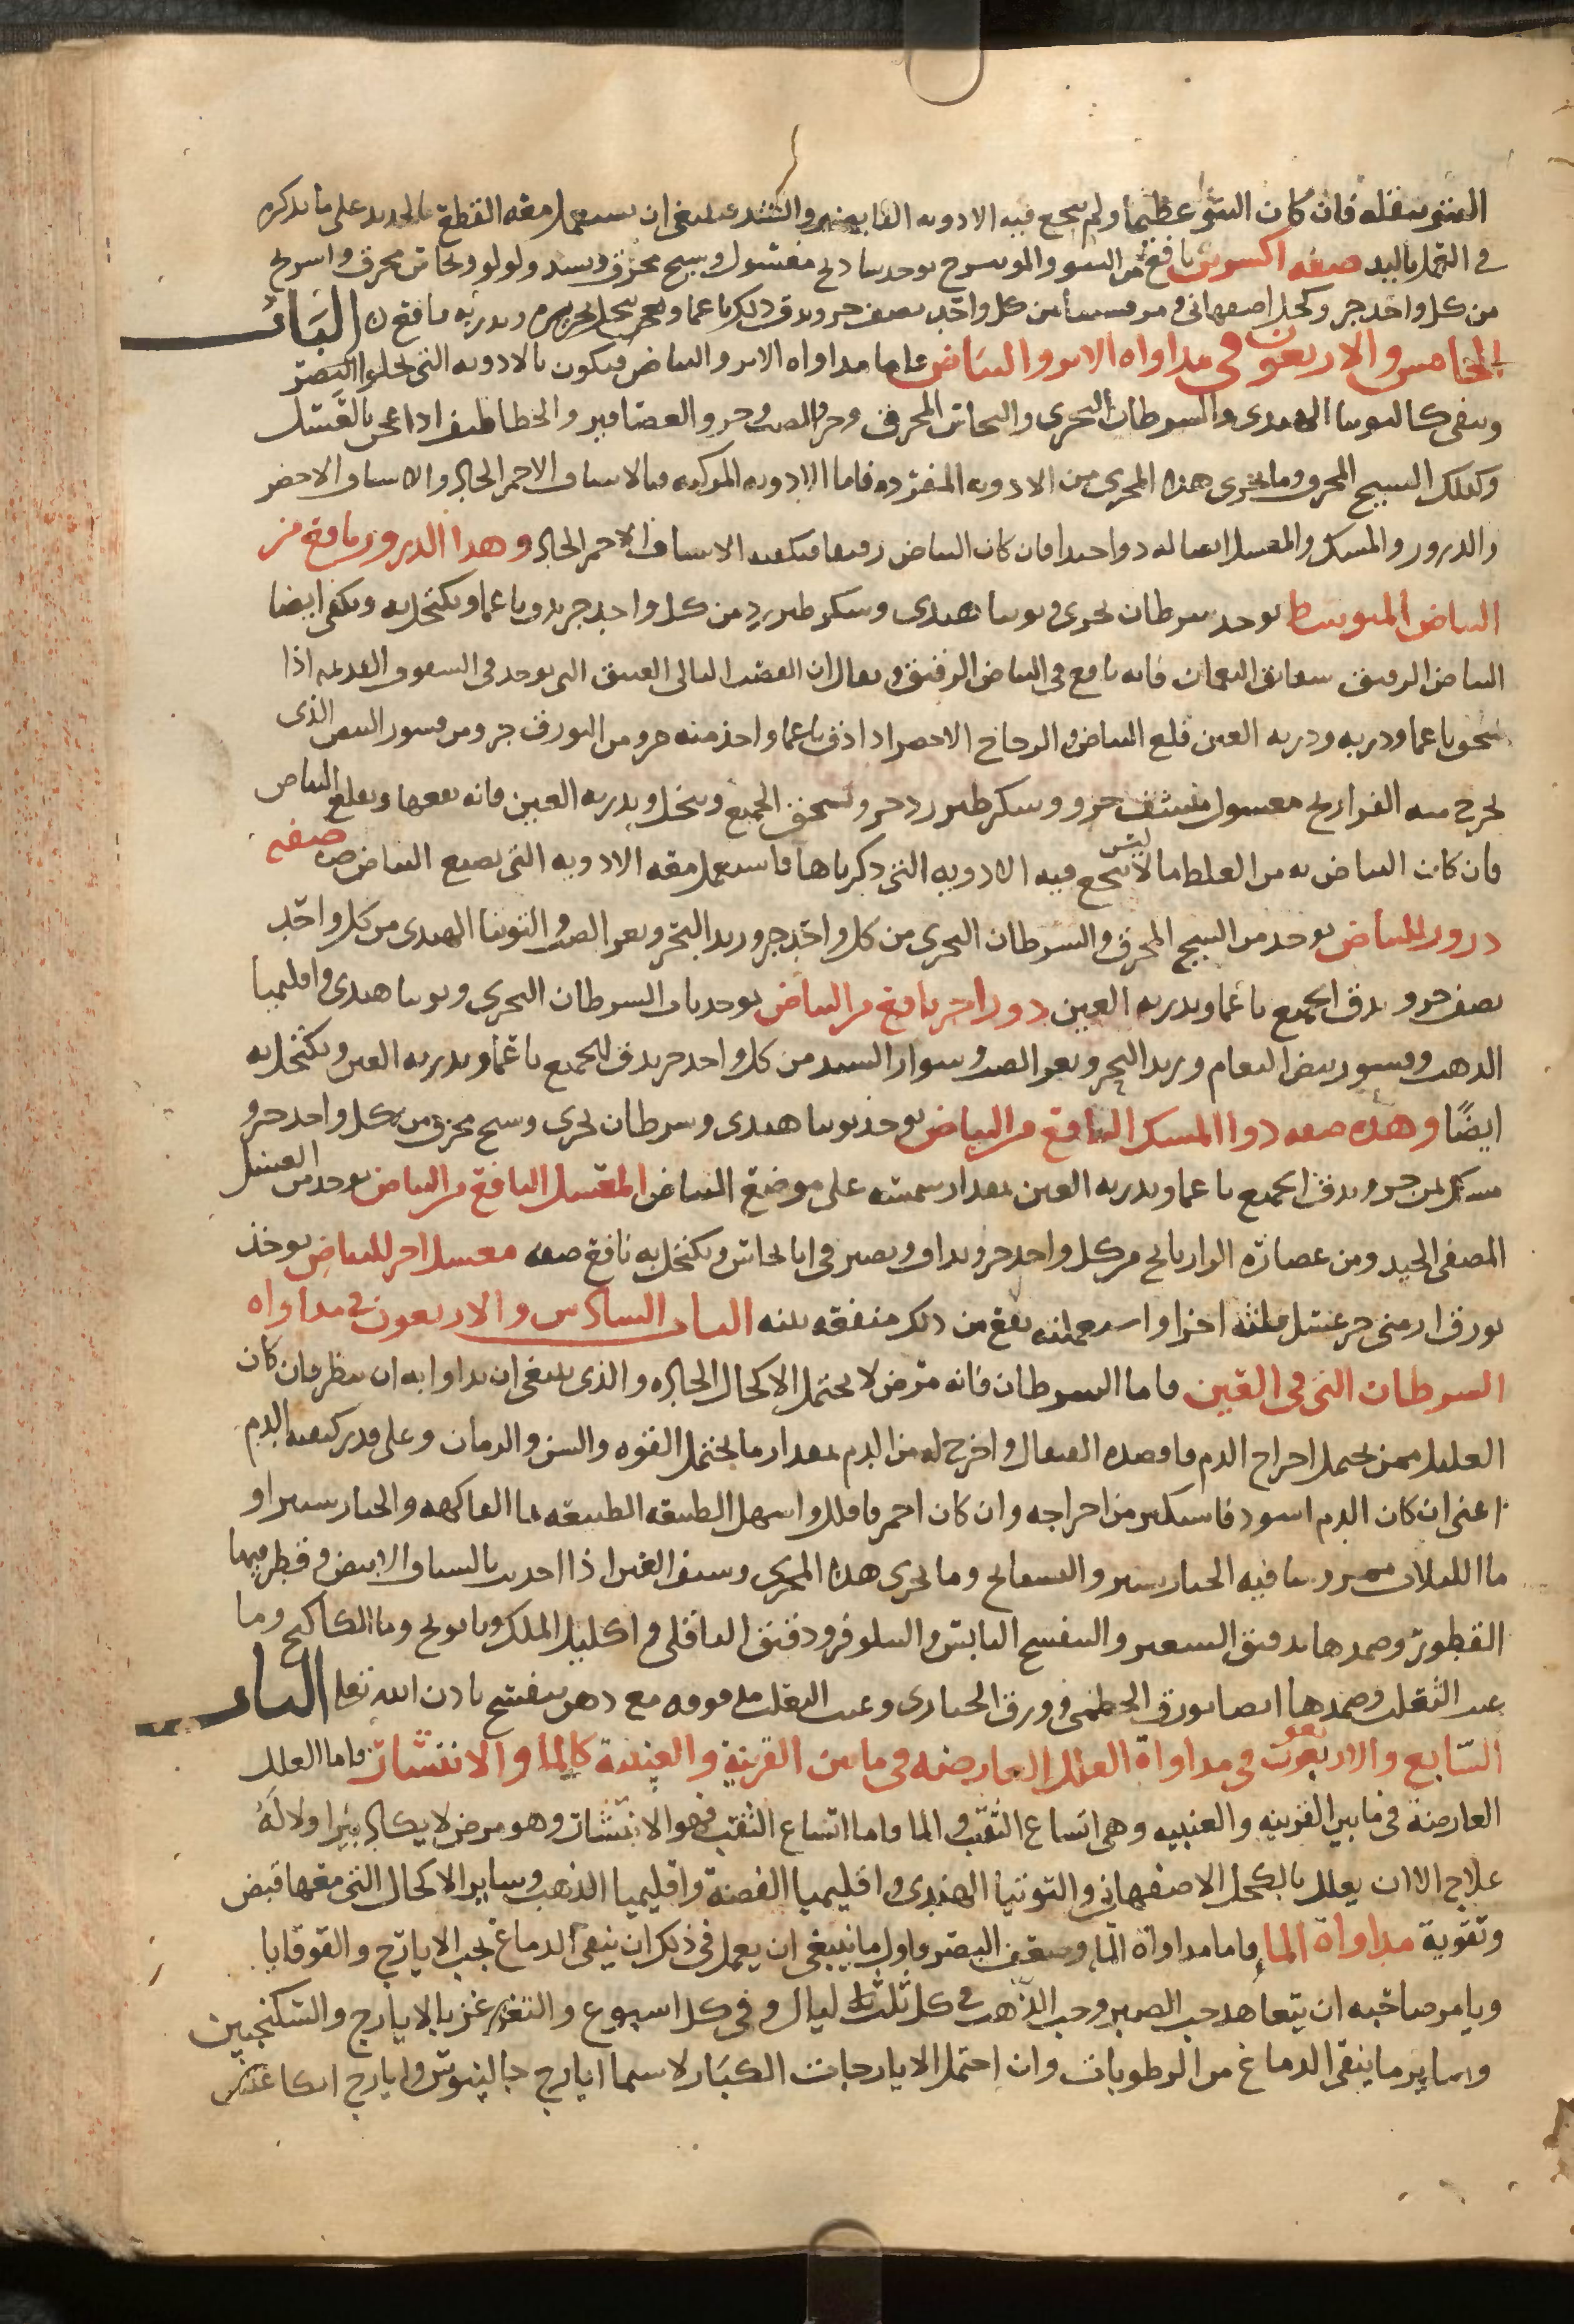 النتو بثقله فان كان النتو عظيما ولم ينجع فيه الادويه القابضه والشد فينبغي ان يستعمل معه القطع بالحديد على ما نذكره
في العمل باليد صفه اكسرين نافع من النتو والموسرج يوخد شادنج مغسول وسبج محرق وبسد ولولو ونحاس محرق واسرنج
من كل واحد جز وكحل اصفهاني ومرقشيثا من كل واحد نصف جز ويدق ذلك ناعما وينخل بحريره ويدر به نافع الباب
الخامس والاربعون في مداواه الاثر والبياض فاما مداواه الاثر والبياض فيكون بالادويه التي تجلوا البصر
وتنقي كالتوتيا الهندي والسرطان البحري والنحاس المحرق وخرو الضب وخرو العصافير والخطاطيف اذا عجن بالعسل
وكذلك السبج المحرق وما يجري هذا المجرى من الادويه المفرده فاما الادويه المركبه فبالاشياف الاحمر الحاد والاشياف الاخضر
والدرور والمسك والمعسل ايضا له دوا جيدا فان كان البياض رقيقا فيكفيه الاشياف الاحمر الحاد وهدا الدرور نافع من
البياض المتوسط يوخد سرطان بحري وتوتيا هندي وسكر طبرزد من كل واحد جز يدق ناعما ويكتحل به ويكفي ايضا
البياض الرقيق شقايق النعمان فانه نافع في البياض الرقيق ويقال ان القصب البالي العتيق الدي يوجد في السقوف القديمه اذا
سحق ناعما ودر به ودر به العين قلع البياض والزجاج الاخضر اذا دق ناعما واخذ منه جز ومن البورق جز ومن قشور البيض الذي
تخرج منه الفراريج مغسول منشف جزو وسكر طبرزد جز ويسحق الجميع وينخل ويدر به العين فانه ينفعها ويقلع البياض
فان كان البياض به من الغلظ ما لا ينجع فيه الادويه التي ذكرناها فاستعمل معه الادويه التي تصبغ البياض صفه
درور للبياض يوخد من السبج المحرق والسرطان البحري من كل واحد جز وزبد البحر وبعر الضب والتوتيا الهندي من كل واحد
نصف جزو يدق الجميع ناعما ويدر به العين درور اخر نافع من البياض يوخد السرطان البحري وتوتيا هندي واقليميا
الذهب وقشور بيض النعام وزبد البحر وبعر الضب وسوار السند من كل واحد جز يدق الجميع ناعما ويدر به العين ويكتحل به
ايضًا وهذه صفه دوا المسك النافع من البياض يوخذ توتيا هندي وسرطان بحري وسبج محرق من كل واحد جزو
مسك ثمن جزو يدق الجميع ناعما ويدر به العين بمقدار سمسمه على موضع البياض المعسل النافع من البياض يوخد من العسل
المصفى الجيد ومن عصارة الرازيانج من كل واحد جزو يداف ويصير في انا نحاس ويكتحل به نافع صفه معسل اخر للبياض يوخذ
بورق ارمني جز عسل ثلثه اجزا واستعملته نفع من ذلك منفعه بينه الباب السادس والاربعون في مداواه
السرطان التي في العين فاما السرطان فانه مرض لا يحتمل الاكحال الحاده والذي ينبغي ان يداوا به ان ينظر فان كان
العليل ممن يحتمل اخراج الدم فافصده القيفال واخرج له من الدم بمقدار ما يحتمل القوه والسن والزمان وعلى قدر كيفيه الدم
اعني ان كان الدم اسود فاستكثر من اخراجه وان كان احمر فاقلل واسهل الطبيعه بما الفاكهه والخيار شنبر او
ما اللبلاب ممروسا فيه الخيار شنبر والبسفايج وما يجري هذا المجرى وينفع العين اذا اخذت بالشياف الابيض وقطر فيها
القطور وضمدها بدقيق الشعير والبنفسج اليابس والنيلوفر ودقيق الباقلى واكليل الملك وبابونج وما الكاكنج وما
عنب الثعلب وضمدها ايضا بورق الخطمي وورق الخبازي وعنب الثعلب مدقوقه مع دهن بنفسج باذن الله تعلى الباب
السّابع والاربعون في مداواة العلل العارضه في ما بين القرنية والعنبية كالما والانتشار فاما العلل
العارضة في ما بين القرنيه والعنبيه وهي اتساع الثقب والما واما اتساع الثقب فهو الانتشار وهو مرض لا يكاد يبرا ولا لَهُ
علاج الا ان يعلل بالكحل الاصفهاني والتوتيا الهندي واقليميا الفضة واقليميا الذهب وساير الاكحال التي معها قبض
وتقوية مداواة الما واما مداواة الما وضعف البصر فاول ما ينبغي ان يعمل في ذلك ان ينقى الدماغ بحب الايارج والقوقايا
ويامر صاحبه ان يتعاهد حب الصبر وحب الذهب في كل ثلث ليال وفي كل اسبوع والتغرغر بالايارج والسكنجبين
وساير ما ينقي الدماغ من الرطوبات وان احتمل الايارجات الكبَار لاسيما ايارج جالينوس وايارج اركاغنيس